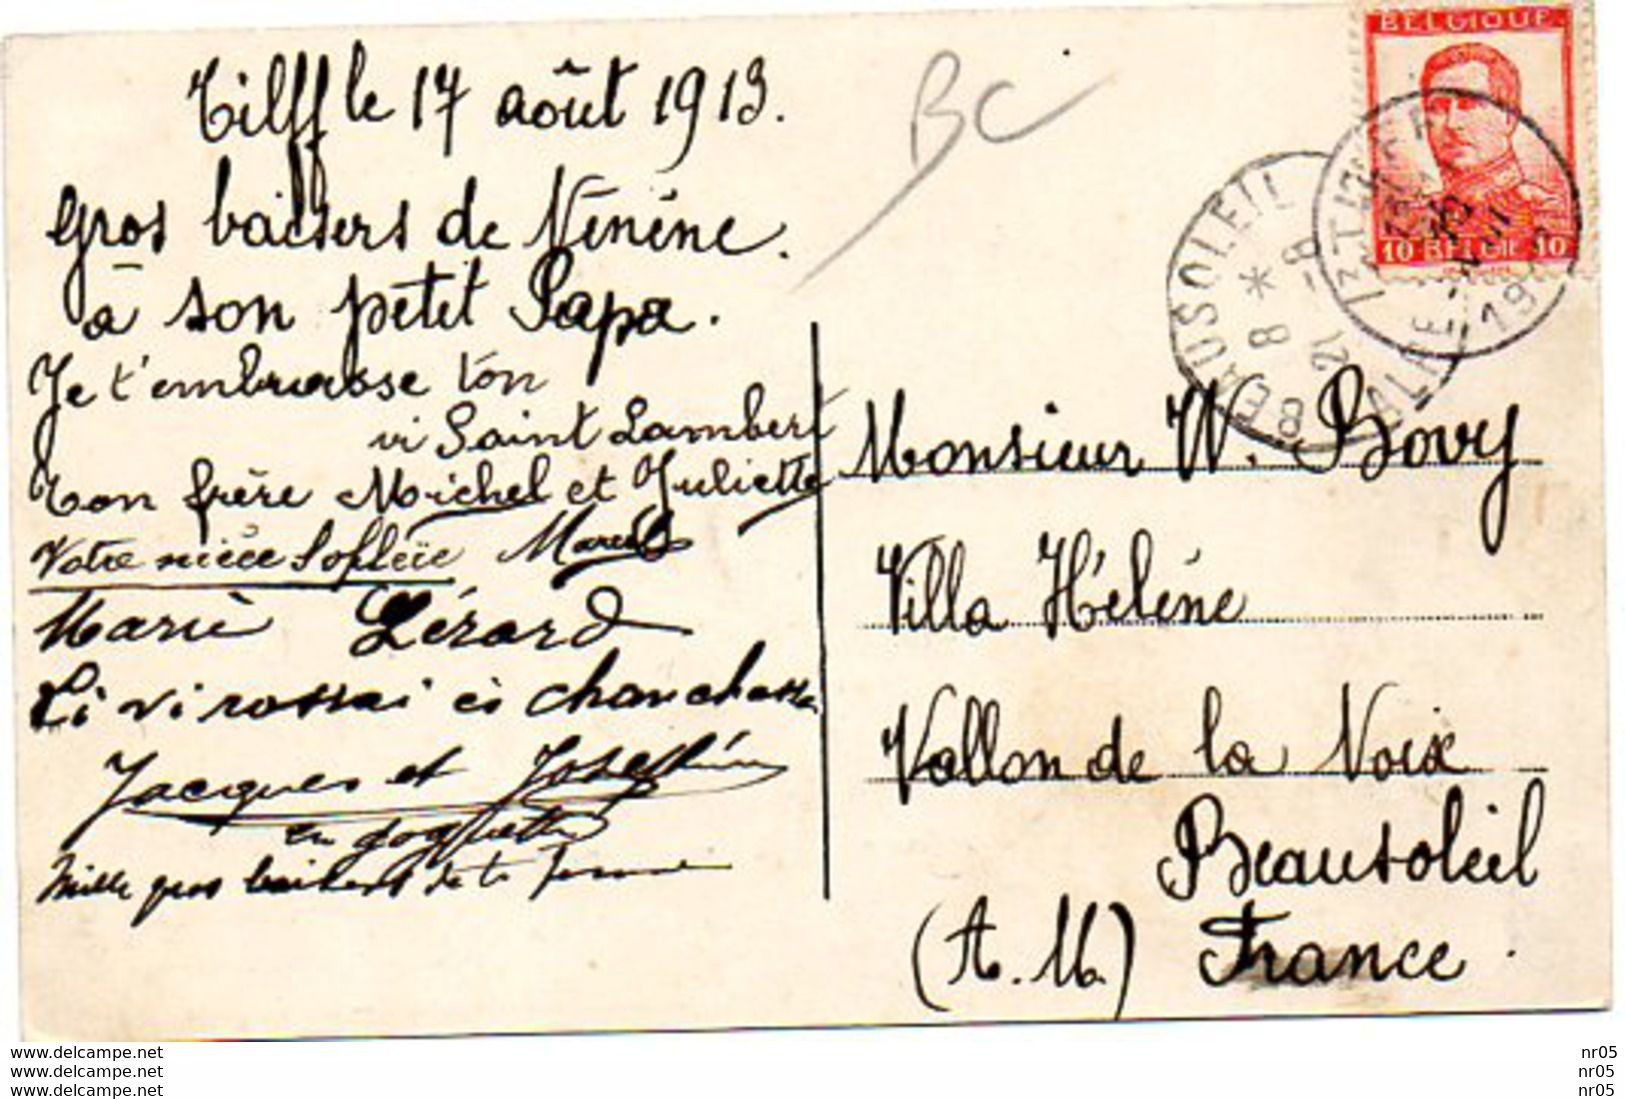 Tilff le 17 août 1913.
Gros baisers de Nénéne.
à son petit Papa.
Je t'embrasse ton
vi Saint Lambert
Ton frère Michel et Juliette
Votre nièce Marcel
Marie Gérard
Li vi rossai es
Jacques et Joséphine
en goguette
Mille gros baisers de ta
BC
BELGIQUE
10 BELGIË 10
BEAUSOLEIL
8 * 8
21 -8
1913
Monsieur W. Bovy
Villa Hélène
Vallon de la Noix
Beausoleil
(A. M.) France.
www.delcampe.net
www.delcampe.net
www.delcampe.net
nr05
nr05
nr05